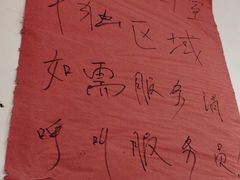 独 空
区域
如需服务请
呼叫服务员